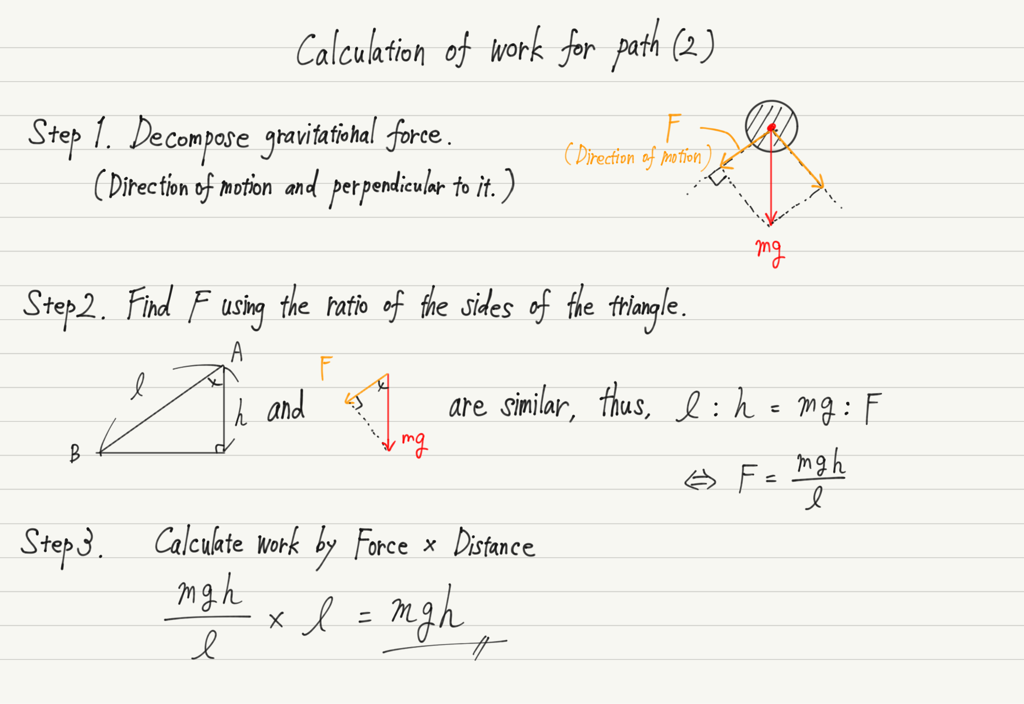 Calculation of work for path (2)
Step 1. Decompose gravitational force.
(Direction of motion and perpendicular to it.)
F
(Direction of motion)
mg
Step2. Find F using the ratio of the sides of the triangle.
A
l
h
B
and
F
mg
are similar, thus, l : h = mg : F
⇔ F = mgh/l
Step3. Calculate work by Force × Distance
mgh/l × l = mgh